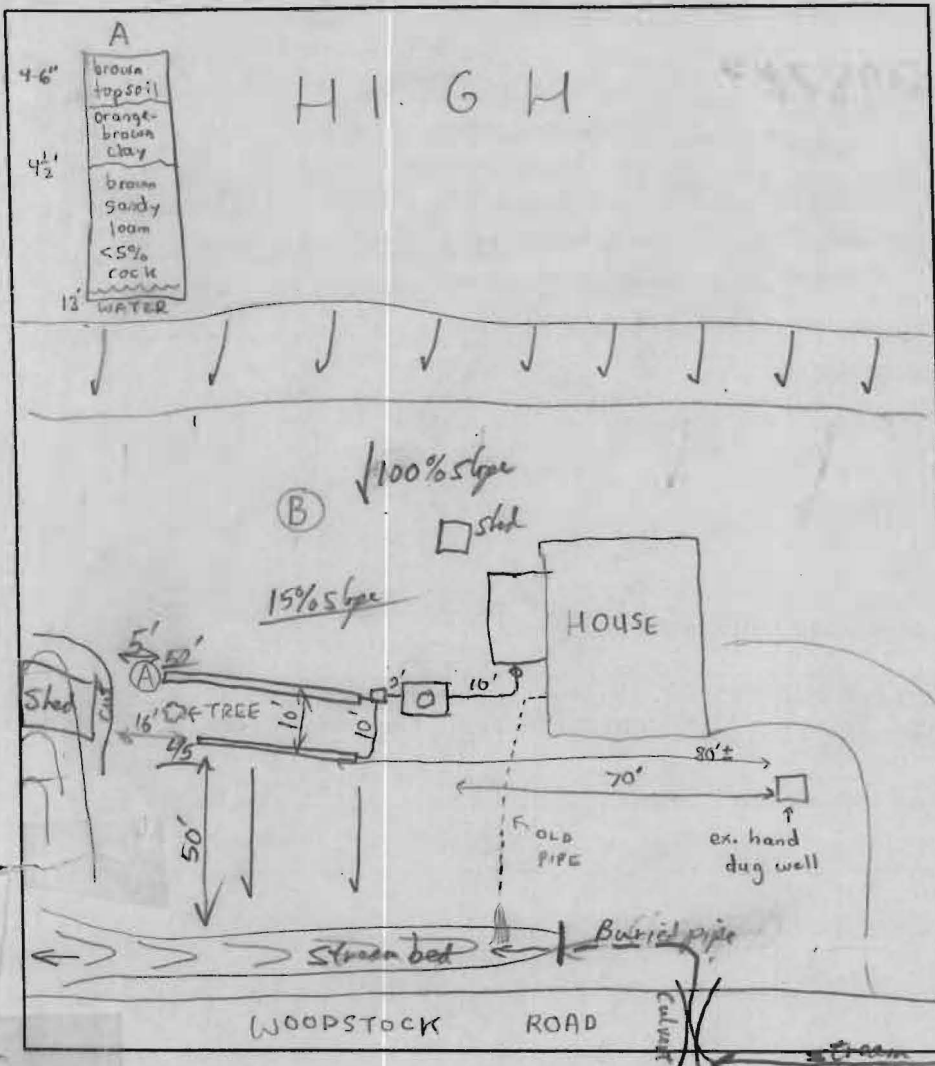 A
4-6"
brown
topsoil
orange-
brown
clay
4½'
brown
sandy
loam
<5%
rock
13'
WATER
HIGH
100% slope
B
shed
15% slope
HOUSE
5'
50'
A
Shed
Cut
16'
TREE
10'
10'
10'
45
80'±
70'
50'
OLD
PIPE
ex. hand
dug well
Stream bed
Buried pipe
WOODSTOCK ROAD
Culvert
stream